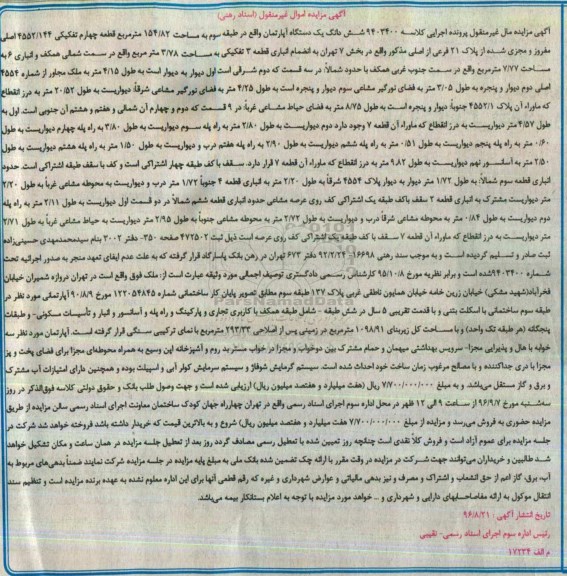 آگهی مزایده اموال غیرمنقول (اسناد رهنی)
آگهی مزایده مال غیرمنقول پرونده اجرایی کلاسه ۹۴۰۳۴۰۰ شش دانگ یک دستگاه آپارتمان واقع در طبقه سوم به مساحت ۱۵۴/۸۲ مترمربع قطعه چهارم تفکیکی ۴۵۵۲/۱۴۴ اصلی
مفروز و مجزی شده از پلاک ۲۱ فرعی از اصلی مذکور واقع در بخش ۷ تهران به انضمام انباری قطعه ۳ تفکیکی به مساحت ۳/۷۸ متر مربع واقع در سمت شمالی همکف و انباری ۶ به
مساحت ۷/۷۷ مترمربع واقع در سمت جنوب غربی همکف با حدود شمالاً: در سه قسمت که دوم شرقی است اول دیوار به دیوار است به طول ۴/۱۵ متر به ملک مجاور از شماره ۴۵۵۴
اصلی دوم دیوار و پنجره به طول ۳/۰۵ متر به فضای نورگیر مشاعی سوم دیوار و پنجره است به طول ۴/۲۵ متر به فضای نورگیر مشاعی شرقاً: دیواریست به طول ۲۰/۵۲ متر به درز انقطاع
که ماوراء آن پلاک ۴۵۵۲/۱ جنوباً: دیوار و پنجره است به طول ۸/۷۵ متر به فضای حیاط مشاعی غرباً: در ۹ قسمت که دوم و چهارم آن شمالی و هفتم و هشتم آن جنوبی است. اول به
طول ۴/۵۷ متر دیواریست به درز انقطاع که ماوراء آن قطعه ۷ وجود دارد دوم دیواریست به طول ۲/۸۰ متر به راه پله سوم دیواریست به طول ۳/۸۰ به راه پله چهارم دیواریست به طول
۰/۶۰ متر به راه پله پنجم دیواریست به طول ۰/۵۱ متر به راه پله ششم دیواریست به طول ۲/۹۰ به راه پله هفتم درب و دیواریست به طول ۱/۵۰ متر به راه پله هشتم دیواریست به طول
۲/۵۰ متر به آسانسور نهم دیواریست به طول ۹/۸۲ متر به درز انقطاع که ماوراء آن قطعه ۷ قرار دارد. سقف با کف طبقه چهار اشتراکی است و کف با سقف طبقه اشتراکی است. حدود
انباری قطعه سوم شمالاً: به طول ۱/۷۲ متر دیوار به دیوار پلاک ۴۵۵۴ شرقاً به طول ۲/۲۰ متر به انباری قطعه ۴ جنوباً ۱/۷۲ متر درب و دیواریست به محوطه مشاعی غرباً به طول ۲/۲۰
متر دیواریست مشترک به انباری قطعه ۲ سقف با کف طبقه یک اشتراکی کف روی عرصه مشاعی حدود انباری قطعه ششم شمالاً در دو قسمت اول دیواریست به طول ۲/۱۱ متر به راه پله
دوم دیواریست به طول ۰/۸۴ متر به محوطه مشاعی شرقاً درب و دیواریست به طول ۲/۷۲ متر به محوطه مشاعی جنوباً به طول ۲/۹۵ متر دیواریست به حیاط مشاعی غرباً به طول ۲/۷۱
متر دیواریست به درز انقطاع که ماوراء آن قطعه ۷ سقف با کف طبقه یک اشتراکی کف روی عرصه است ذیل ثبت ۴۷۲۵۰۲ صفحه ۳۵۰ دفتر ۳۰۰۲ بنام سیدمحمدمهدی حسینی‌زاده
ثبت صادر و تسلیم گردیده است و به موجب سند رهنی ۱۶۶۹۸- ۹۲/۲/۲۴ دفتر ۶۷۳ تهران در رهن بانک پاسارگاد قرار گرفته که به علت عدم ایفای تعهد منجر به صدور اجرائیه تحت
شماره ۹۴۰۳۴۰۰ شده است و برابر نظریه مورخ ۹۵/۱۰/۸ کارشناس رسمی دادگستری توصیف اجمالی مورد وثیقه عبارت است از: ملک فوق واقع است در تهران دروازه شمیران خیابان
فخرآباد(شهید مشکی) خیابان زرین خامه خیابان همایون ناطقی غربی پلاک ۱۳۷ طبقه سوم مطابق تصویر پایان کار ساختمانی شماره ۱۲۲۰۵۴۸۴۵ مورخ ۹۰/۸/۹ آپارتمانی مورد نظر در
طبقه سوم ساختمانی با اسکلت بتنی و با قدمت تقریبی ۵ سال در شش طبقه - شامل طبقه همکف با کاربری تجاری و پارکینگ و راه پله و آسانسور و انبار و تأسیسات مسکونی- و طبقات
پنجگانه (هر طبقه تک واحد) و با مساحت کل زیربنای ۱۰۹۸/۹۱ مترمربع در زمینی پس از اصلاحی ۲۹۳/۳۳ مترمربع با نمای ترکیبی سنگی قرار گرفته است. آپارتمان مورد نظر سه
خوابه با هال و پذیرایی مجزا- سرویس بهداشتی میهمان و حمام مشترک بین دوخواب و مجزا در خواب مستر بد روم و آشپزخانه اپن وسیع به همراه محوطه‌ای مجزا برای فضای پخت و پز
مجزا با دری جداکننده و با مصالح مرغوب زمان ساخت خود احداث شده است. سیستم گرمایش شوفاژ و سیستم سرمایش کولر آبی و اسپیلت بوده و همچنین دارای امتیازات آب مشترک
و برق و گاز مستقل می‌باشد. و به مبلغ ۷/۷۰۰/۰۰۰/۰۰۰ ریال (هفت میلیارد و هفتصد میلیون ریال) ارزیابی شده است و جهت وصول طلب بانک و حقوق دولتی کلاسه فوق‌الذکر در روز
سه‌شنبه مورخ ۹۶/۹/۷ از ساعت ۹ الی ۱۲ ظهر در محل اداره سوم اجرای اسناد رسمی واقع در تهران چهارراه جهان کودک ساختمان معاونت اجرای اسناد رسمی سالن مزایده از طریق
مزایده حضوری به فروش می‌رسد و مزایده از مبلغ ۷/۷۰۰/۰۰۰/۰۰۰ هفت میلیارد و هفتصد میلیون ریال) شروع و به بالاترین قیمت که خریدار داشته باشد فروخته خواهد شد شرکت در
جلسه مزایده برای عموم آزاد است و فروش کلاً نقدی است چنانچه روز تعیین شده با تعطیل رسمی مصادف گردد روز بعد از تعطیل جلسه مزایده در همان ساعت و مکان تشکیل خواهد
شد طالبین و خریداران می‌توانند جهت شرکت در مزایده در وقت مقرر با ارائه چک تضمین شده بانک ملی به مبلغ پایه مزایده در جلسه مزایده شرکت نمایند ضمناً بدهی‌های مربوط به
آب، برق، گاز اعم از حق انشعاب و اشتراک و مصرف و نیز بدهی مالیاتی و عوارض شهرداری و غیره که رقم قطعی آنها برای این اداره معلوم نشده به عهده برنده مزایده است و تنظیم سند
انتقال موکول به ارائه مفاصاحسابهای دارایی و شهرداری و ... خواهد مورد مزایده با توجه به اعلام بستانکار بیمه می‌باشد.
تاریخ انتشار آگهی: ۹۶/۸/۲۱
رئیس اداره سوم اجرای اسناد رسمی- نقیبی
م الف ۱۷۲۳۴
ParsNamadData